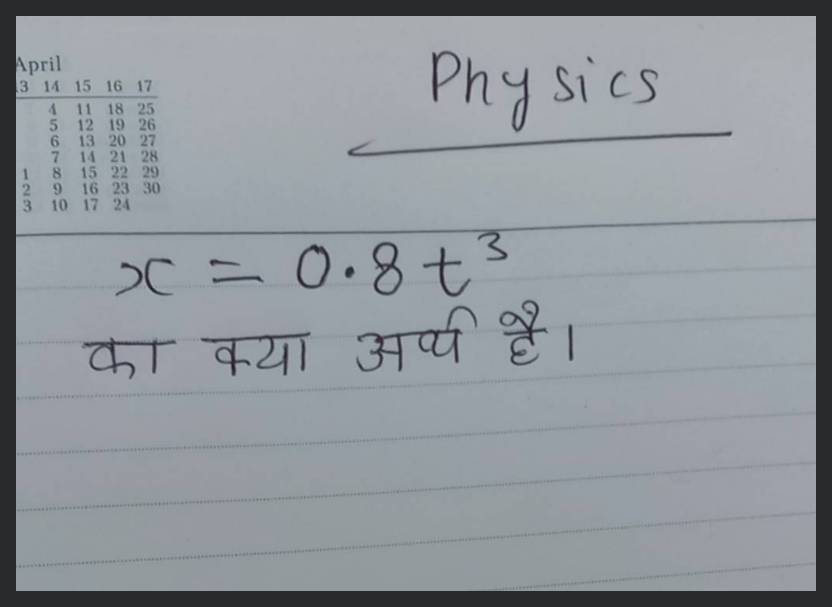 April
13 14 15 16 17
4 11 18 25
5 12 19 26
6 13 20 27
7 14 21 28
1 8 15 22 29
2 9 16 23 30
3 10 17 24
Physics
x = 0.8t³
का क्या अर्थ है।